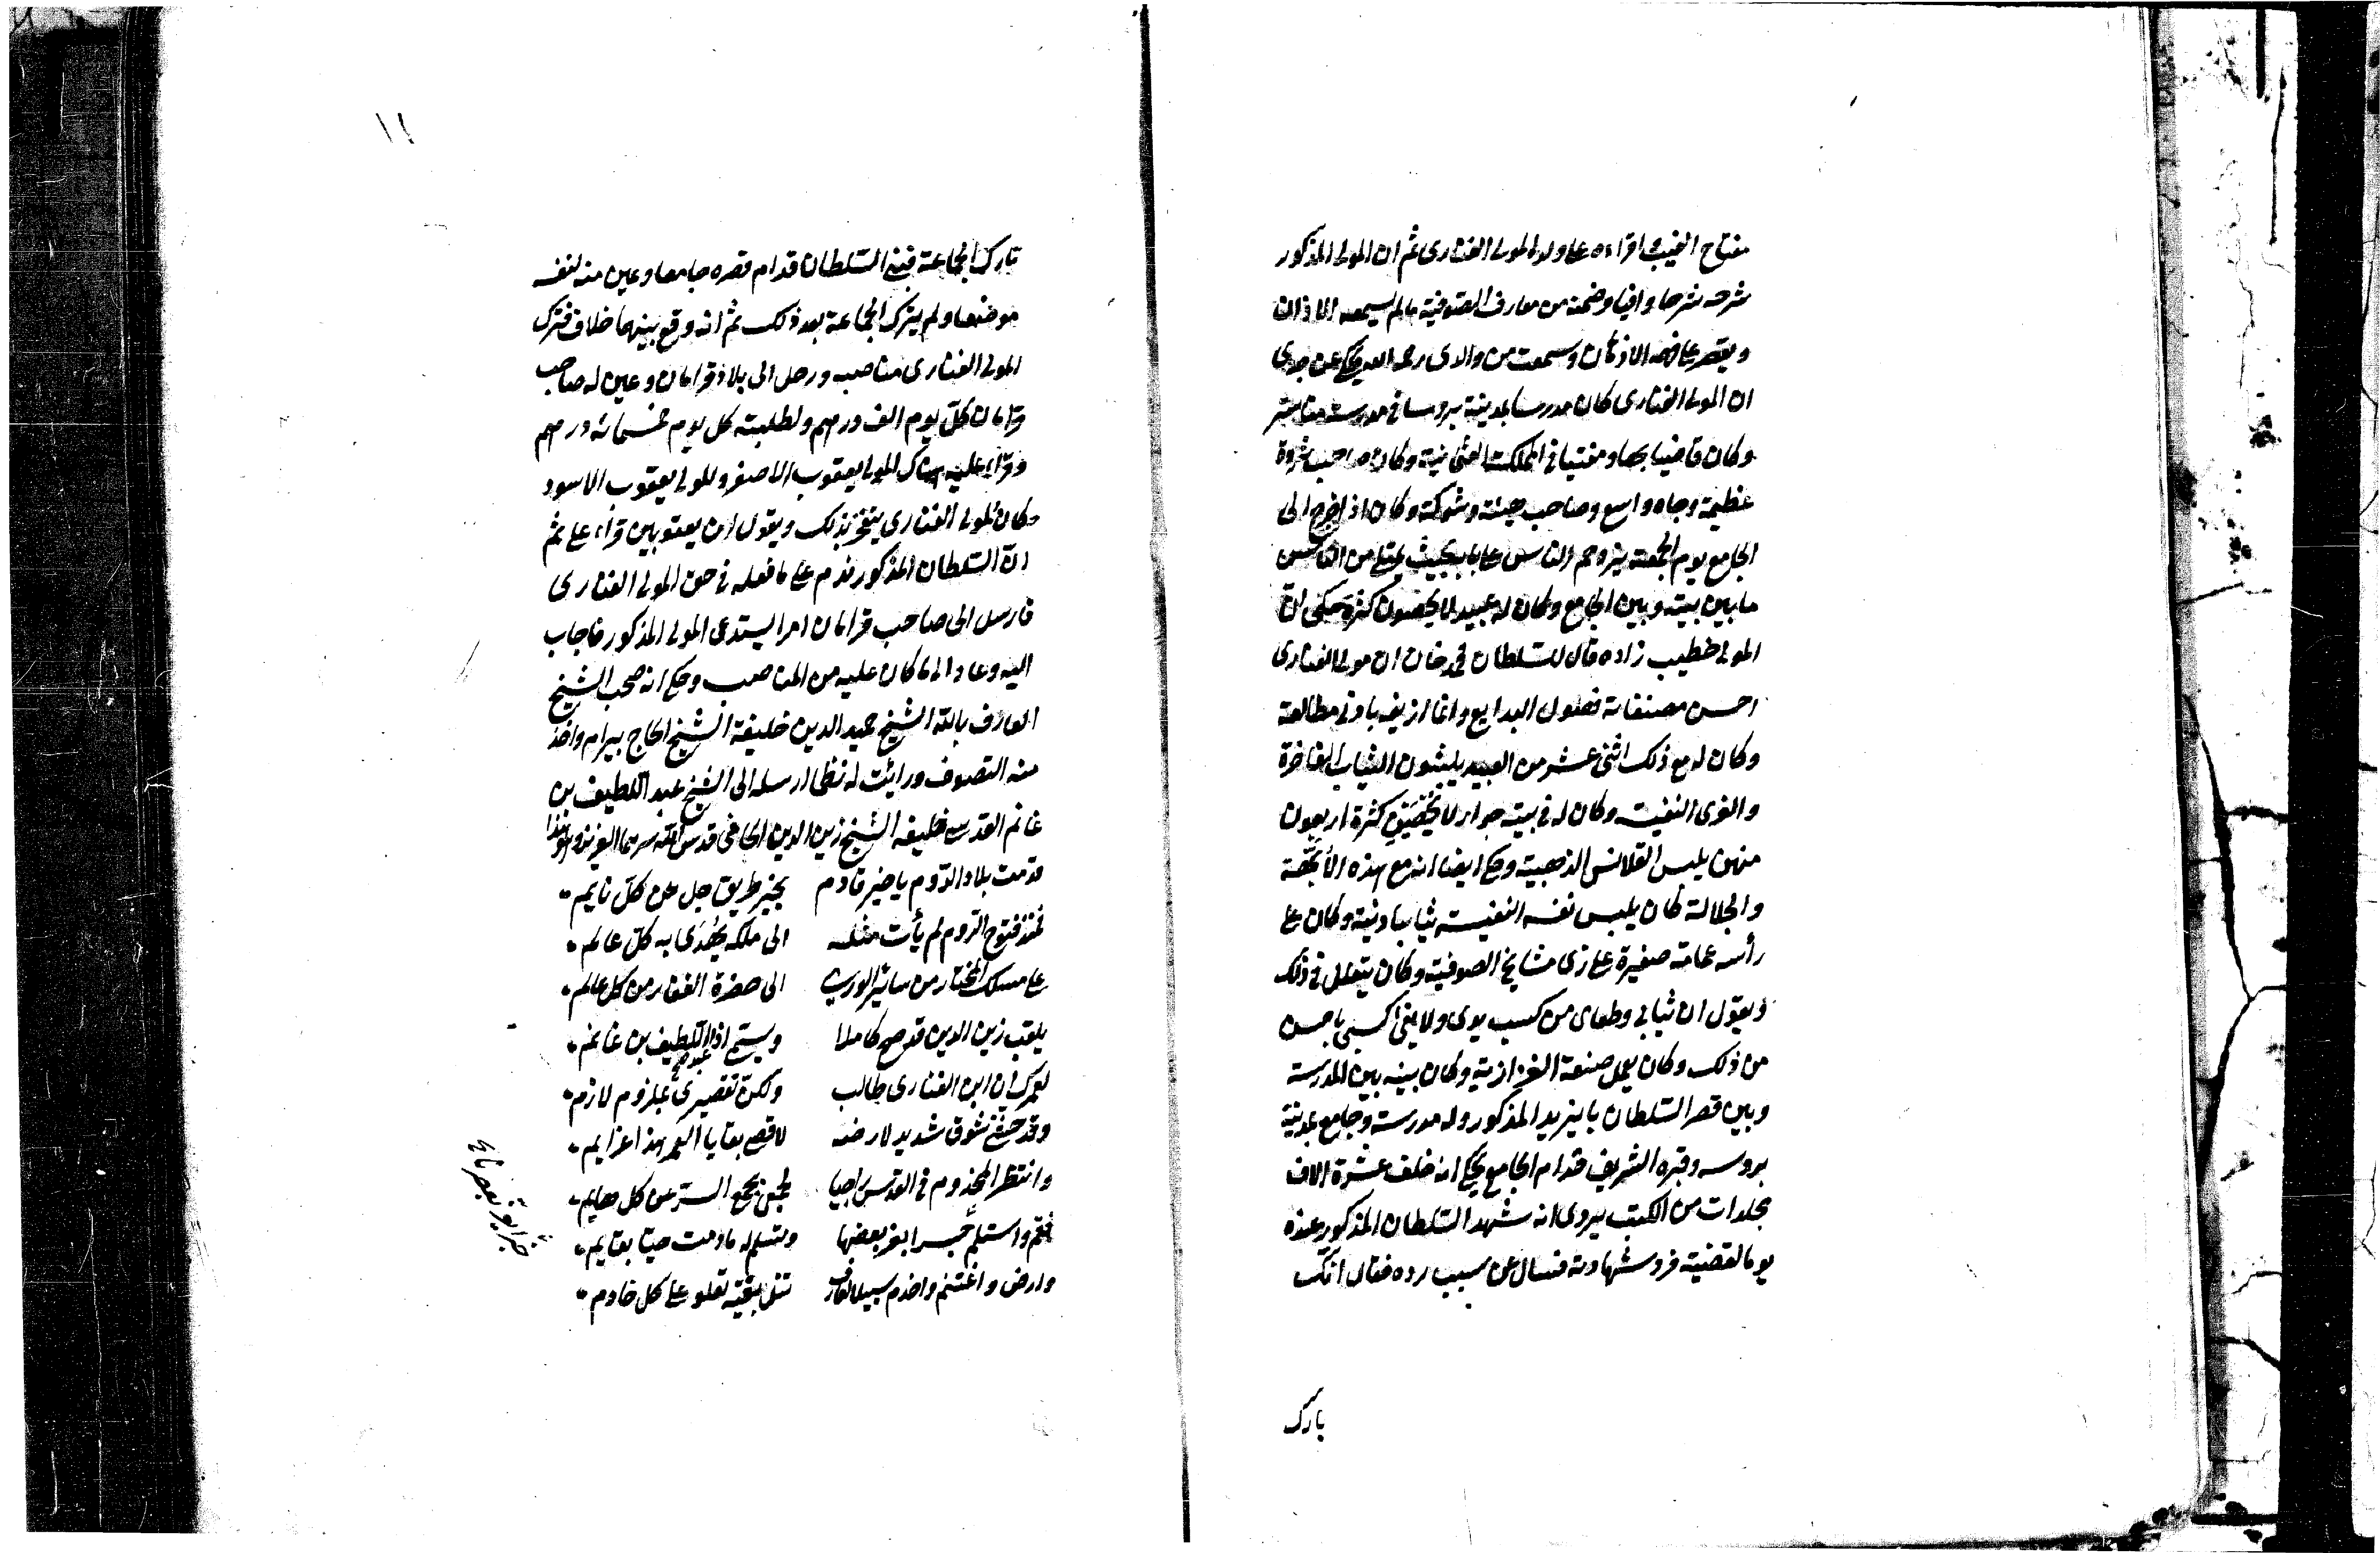 مفتاح الغيب اقراءه على ولده المولى الفنارى ثم ان المولى المذكور
شرحه شرحا وافيا وضمنه من معارف الصوفية ما لم يسمعه الاذان
ويقصر عن فهمه الاذهان وسمعت من والدى رحمه الله يحكى عن جدى
ان المولى الفنارى كان مدرسا بمدينة بروسا فى مدرسة مناستر
وكان قاضيا بها ومفتيا فى المملكت العثمانية وكان صاحب ثروة
عظيمة وجاه واسع وصاحب هيئة وشوكة وكان اذا خرج الى
الجامع يوم الجمعة يزدحم الناس على بابه بحيث يمتلئ من الناس
ما بين بيته وبين الجامع وكان له عبيد لا يحصون كثرة حكى ان
المولى خطيب زاده قال للسلطان محمد خان ان مولى الفنارى
احسن مصنفاته فصول البدايع وانا ازيفه بادنى مطالعة
وكان له مع ذلك اثنى عشر من العبيد يلبسون الثياب الفاخرة
والفرى النفيسة وكان له فى بيته جوار لا يحصين كثرة اربعون
منهن يلبسن القلانس الذهبية وحكى ايضا انه مع هذه الابهة
والجلالة كان يلبس نفسه النفيسة ثيابا دنية وكان على
رأسه عمامة صغيرة على زى مشايخ الصوفية وكان يتعلل فى ذلك
ويقول ان ثيابى وطعامى من كسب يدى ولا يفى كسبى باحسن
من ذلك وكان يعمل صنعة القزازية وكان بيته بين المدرسة
وبين قصر السلطان بايزيد المذكور وله مدرسة وجامع بمدينة
بروسه وقبره الشريف قدام الجامع يحكى انه خلف عشرة الاف
مجلدات من الكتب يروى انه شهد السلطان المذكور عنده
يوما لقضية فرد شهادته فسال عن سبب رده فقال انك
تارك
١١
تارك الجماعة فبنى السلطان قدام قصره جامعا وعين منه لنفسه
موضعا ولم يترك الجماعة بعد ذلك ثم انه وقع بينهما خلاف فترك
المولى الفنارى مناصبه ورحل الى بلاد قرامان وعين له صاحب
قرامان كل يوم الف درهم ولطلبته كل يوم خمسمائه درهم
وقراء عليه هناك المولى يعقوب الاصفر والمولى يعقوب الاسود
وكان المولى الفنارى يفتخر بذلك ويقول ان يعقوبين قراء على ثم
ان السلطان المذكور ندم على ما فعله فى حق المولى الفنارى
فارسل الى صاحب قرامان امرا يستدعى المولى المذكور فاجاب
اليه وعاد الى ما كان عليه من المناصب وحكى انه صحب الشيخ
العارف بالله الشيخ حميد الدين خليفة الشيخ الحاج بيرام واخذ
منه التصوف ورائت له نظما ارسله الى الشيخ عبد اللطيف بن
غانم القدسى خليفه الشيخ زين الدين الخافى قدس الله سرهما العزيز وهو هذا
قدمت بلاد الروم يا خير قادم بخير طريق جل عن كل نايم
فمنذ فتوح الروم لم يأت مثله الى ملكه يهدى به كل عالم
على مسلك المختار من سائر الورى الى حضرة الغفار من كل عالم
يلقب زين الدين قد صح كاملا ويسمى اذا عبد اللطيف بن غانم
لعمرك ان ابن الفنارى طالب ولكن تقصيرى بملزوم لازم
وقد حثنى شوق شديد لارضه لاقصى بقايا العمر هذا عزايم
وانتظر المخدوم فى القدس راجيا لجمعى بجمع الستر عن كل هايم
فقم واستلم حبرا بغر بعضها وتسلم له ما دمت حيا بقايم
وارض واغتنم واخدم سبيل العارف تنل بقية تعلو على كل خادم